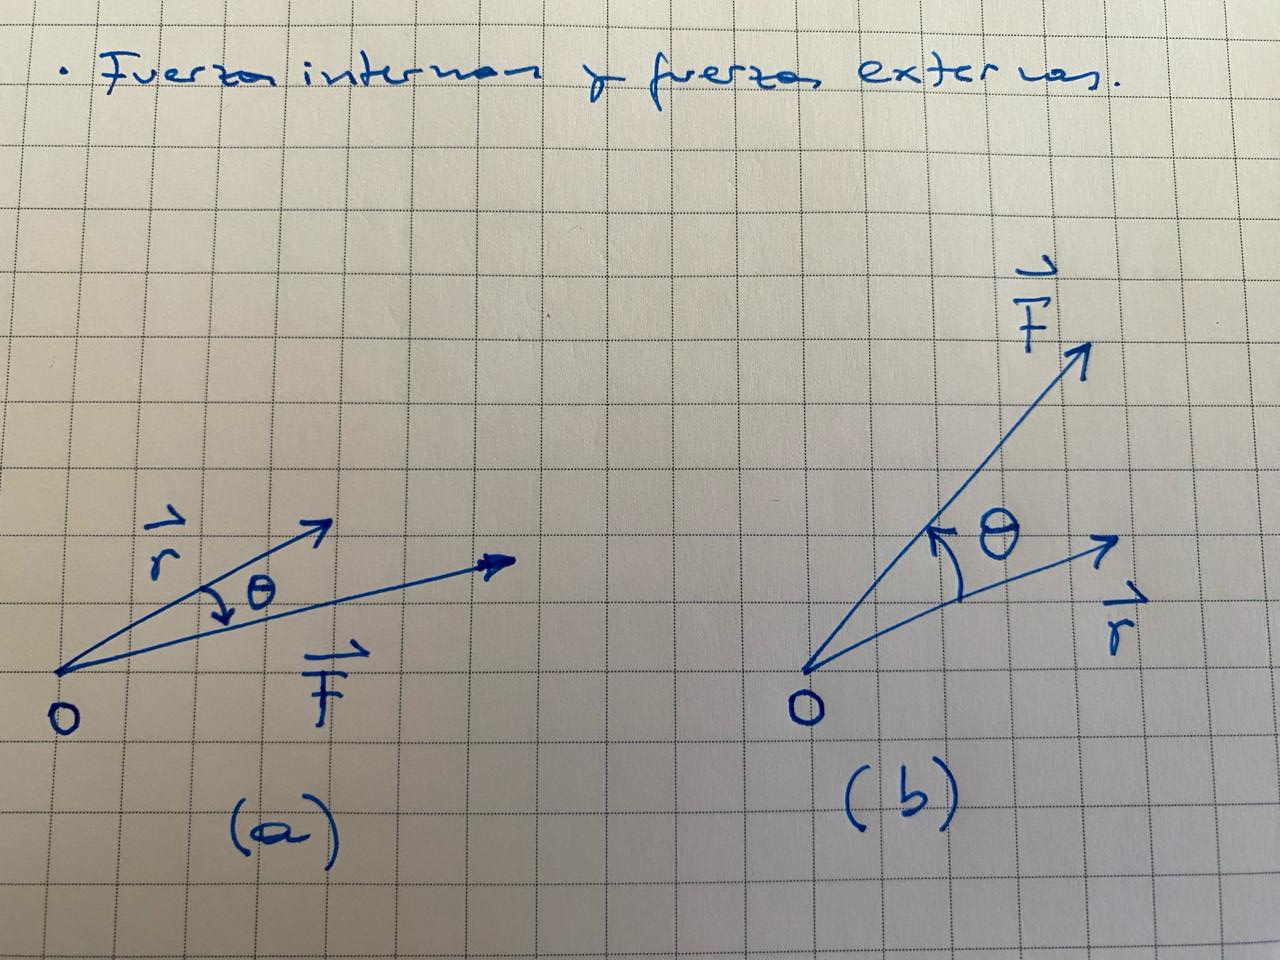 · Fuerzas internas y fuerzas externas.
F
r
θ
F
O
(a)
θ
r
O
(b)